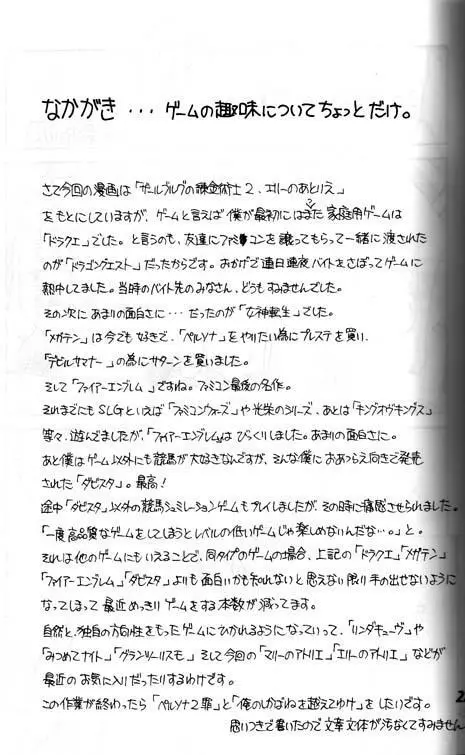 なかがき・・・ゲームの趣味についてちょっとだけ。
さて今回の漫画は「ザールブルグの錬金術士2、エリーのあとりえ」
をもとにしていますが、ゲームと言えば僕が最初にはまった家庭用ゲームは
「ドラクエ」でした。と言うのも、友達にファミコンを譲ってもらって一緒に渡された
のが「ドラゴンクエスト」だったからです。おかげで連日連夜バイトをさぼってゲームに
熱中してました。当時のバイト先のみなさん、どうもすみませんでした。
その次にあまりの面白さに・・・だったのが「女神転生」でした。
「メガテン」は今でも好きで、「ペルソナ」をやりたい為にプレステを買い、
「デビルサマナー」の為にサターンを買いました。
そして「ファイアーエンブレム」ですね。ファミコン最後の名作。
それまでにもSLGといえば「ファミコンウォーズ」や光栄のシリーズ、あとは「キングオヴキングス」
等々、遊んでましたが、「ファイアーエンブレム」はびっくりしました。あまりの面白さに。
あと僕はゲーム以外にも競馬が大好きなんですが、そんな僕におあつらえ向きで発売
された「ダビスタ」。最高!
途中「ダビスタ」以外の競馬シュミレーションゲームもプレイしましたが、その時に痛感させられました。
「一度高品質なゲームをしてしまうとレベルの低いゲームじゃ楽しめないんだな…。」と。
それは他のゲームにもいえることで、同タイプのゲームの場合、上記の「ドラクエ」「メガテン」
「ファイアーエンブレム」「ダビスタ」よりも面白いかも知れないと思えない限り手の出せないように
なってしまって最近めっきりゲームをする本数が減ってます。
自然と、独自の方向性をもったゲームにひかれるようになっていって、「リンダキューヴ」や
「みつめてナイト」「グランツーリスモ」そして今回の「マリーのアトリエ」「エリーのアトリエ」などが
最近のお気に入りだったりするわけです。
この作業が終わったら「ペルソナ2罪」と「俺のしかばねを越えてゆけ」をしたいです。
思いつきで書いたので文章文体が汚なくてすみません
2